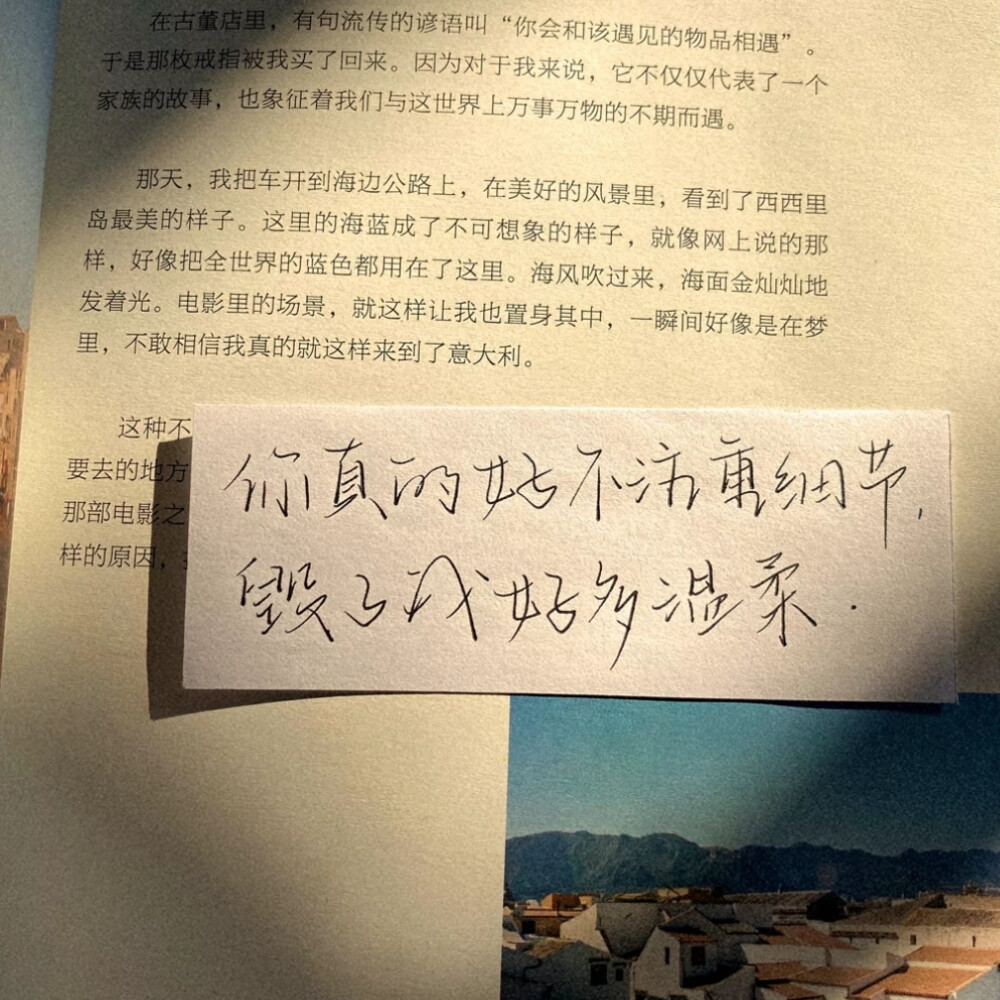 在古董店里，有句流传的谚语叫“你会和该遇见的物品相遇”。
于是那枚戒指被我买了回来。因为对于我来说，它不仅仅代表了一个
家族的故事，也象征着我们与这世界上万事万物的不期而遇。
那天，我把车开到海边公路上，在美好的风景里，看到了西西里
岛最美的样子。这里的海蓝成了不可想象的样子，就像网上说的那
样，好像把全世界的蓝色都用在了这里。海风吹过来，海面金灿灿地
发着光。电影里的场景，就这样让我也置身其中，一瞬间好像是在梦
里，不敢相信我真的就这样来到了意大利。
这种不
要去的地方
那部电影之
样的原因，
你真的好不注重细节，
毁了我好多温柔.